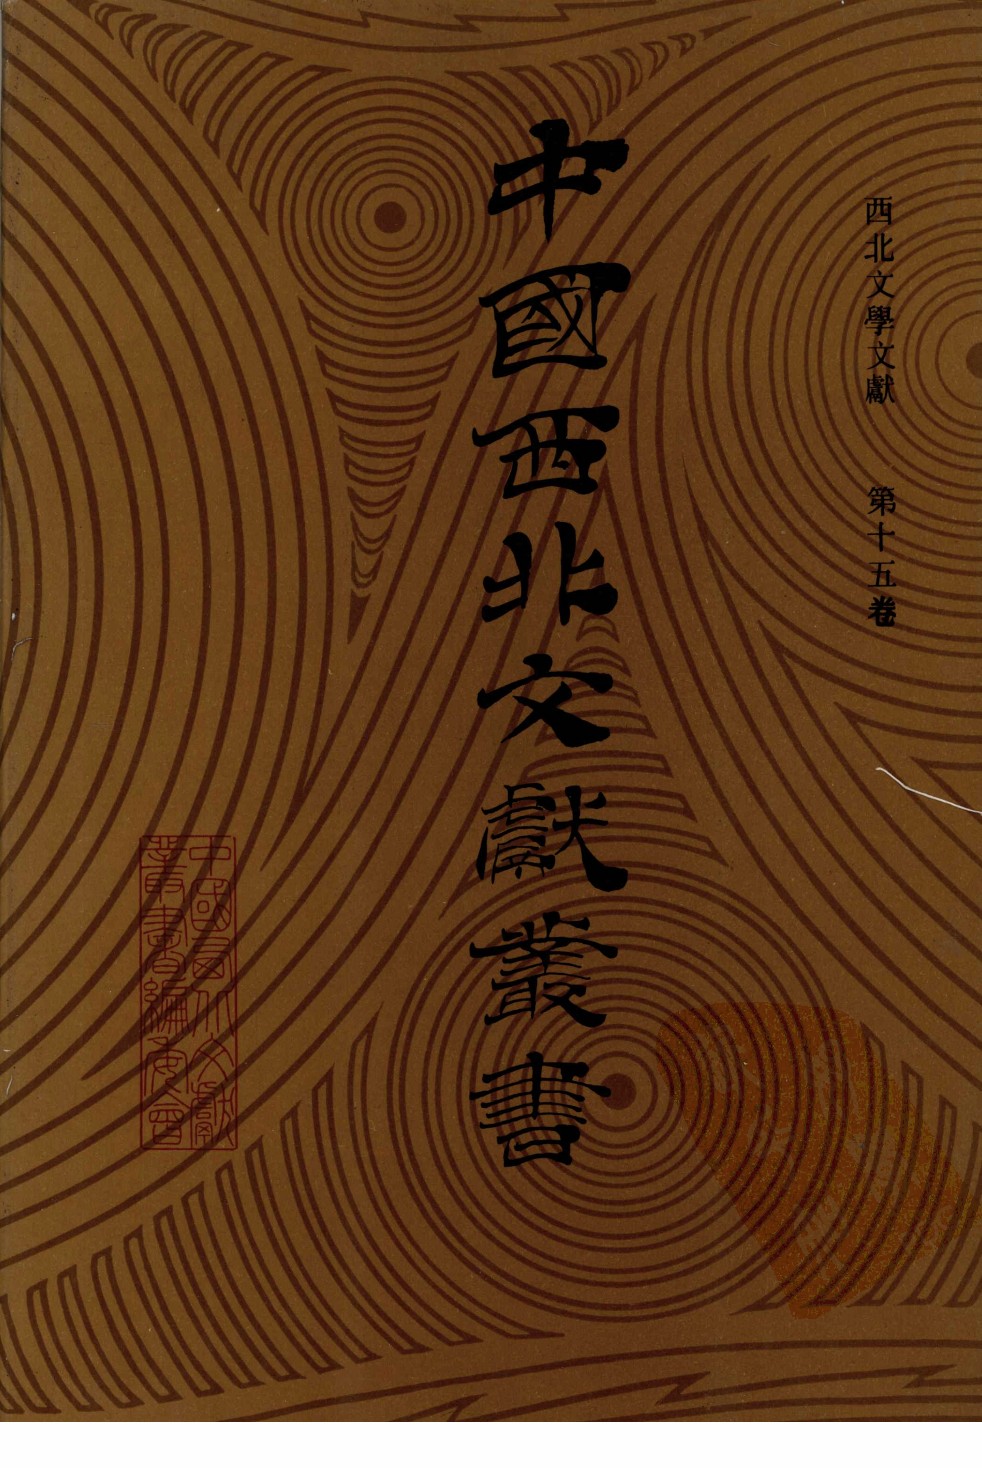 西北文學文獻 第十五卷
中國西北文獻叢書
中國西北文獻
叢書編委會